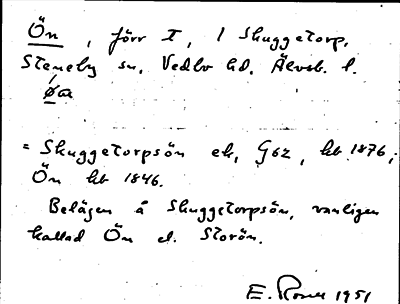 Ön, förr T, 1 Skuggetorp,
Steneby sn, Vedbo hd, Älvsb. l.
öa
= Skuggetorpsön ek, G62, hb 1876,
Ön hb 1846.
Belägen å Skuggetorpsön, vanligen
kallad Ön el. Storön.
E. 1951